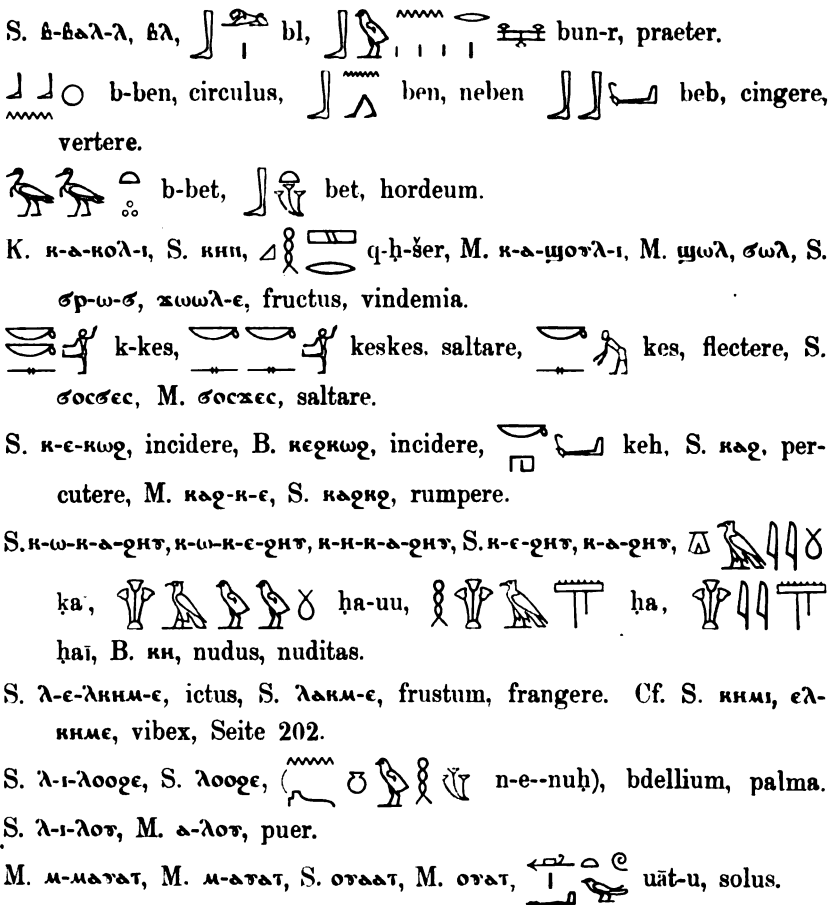 S. ⲃ-ⲃⲁⲗ-ⲗ, ⲃⲗ, bl, bun-r, praeter.
b-ben, circulus, ben, neben beb, cingere,
vertere.
b-bet, bet, hordeum.
K. ⲕ-ⲁ-ⲕⲟⲗ-ⲓ, S. ⲕⲏⲡ, q-ḥ-šer, M. ⲕ-ⲁ-ϣⲟⲩⲗ-ⲓ, M. ϣⲱⲗ, ϭⲱⲗ, S.
ϭⲣ-ⲱ-ϭ, ϫⲱⲱⲗ-ⲉ, fructus, vindemia.
k-kes, keskes. saltare, kes, flectere, S.
ϭⲟⲥϭⲉⲥ, M. ϭⲟⲥϫⲉⲥ, saltare.
S. ⲕ-ⲉ-ⲕⲱϩ, incidere, B. ⲕⲉϩⲕⲱϩ, incidere, keh, S. ⲕⲁϩ, per-
cutere, M. ⲕⲁϩ-ⲕ-ⲉ, S. ⲕⲁϩⲕϩ, rumpere.
S. ⲕ-ⲱ-ⲕ-ⲁ-ϩⲏⲩ, ⲕ-ⲱ-ⲕ-ⲉ-ϩⲏⲩ, ⲕ-ⲏ-ⲕ-ⲁ-ϩⲏⲩ, S. ⲕ-ⲉ-ϩⲏⲩ, ⲕ-ⲁ-ϩⲏⲩ,
ḳa, ḥa-uu, ḥa, ḥaï, B. ⲕⲏ, nudus, nuditas.
S. ⲗ-ⲉ-ⲗⲕⲏⲙ-ⲉ, ictus, S. ⲗⲁⲕⲙ-ⲉ, frustum, frangere. Cf. S. ⲕⲏⲙⲓ, ⲉⲗ-
ⲕⲏⲙⲉ, vibex, Seite 202.
S. ⲗ-ⲓ-ⲗⲟⲟϩⲉ, S. ⲗⲟⲟϩⲉ, ( n-e--nuḥ), bdellium, palma.
S. ⲗ-ⲓ-ⲗⲟⲩ, M. ⲁ-ⲗⲟⲩ, puer.
M. ⲙ-ⲙⲁⲩⲁⲧ, M. ⲙ-ⲁⲩⲁⲧ, S. ⲟⲩⲁⲁⲧ, M. ⲟⲩⲁⲧ, uāt-u, solus.